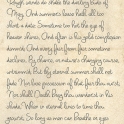 Rough winds do shake the darling buds of
May, And summer's lease hath all too
short a date: Sometime too hot the eye of
heaven shines, And often is his gold complexion
dimm'd; And every fair from fair sometime
declines, By chance, or nature's changing course,
untrimm'd; But thy eternal summer shall not
fade, Nor lose possession of that fair thou owest;
Nor shall Death brag thou wander'st in his
shade, When in eternal lines to time thou
growest: So long as men can breathe or eyes